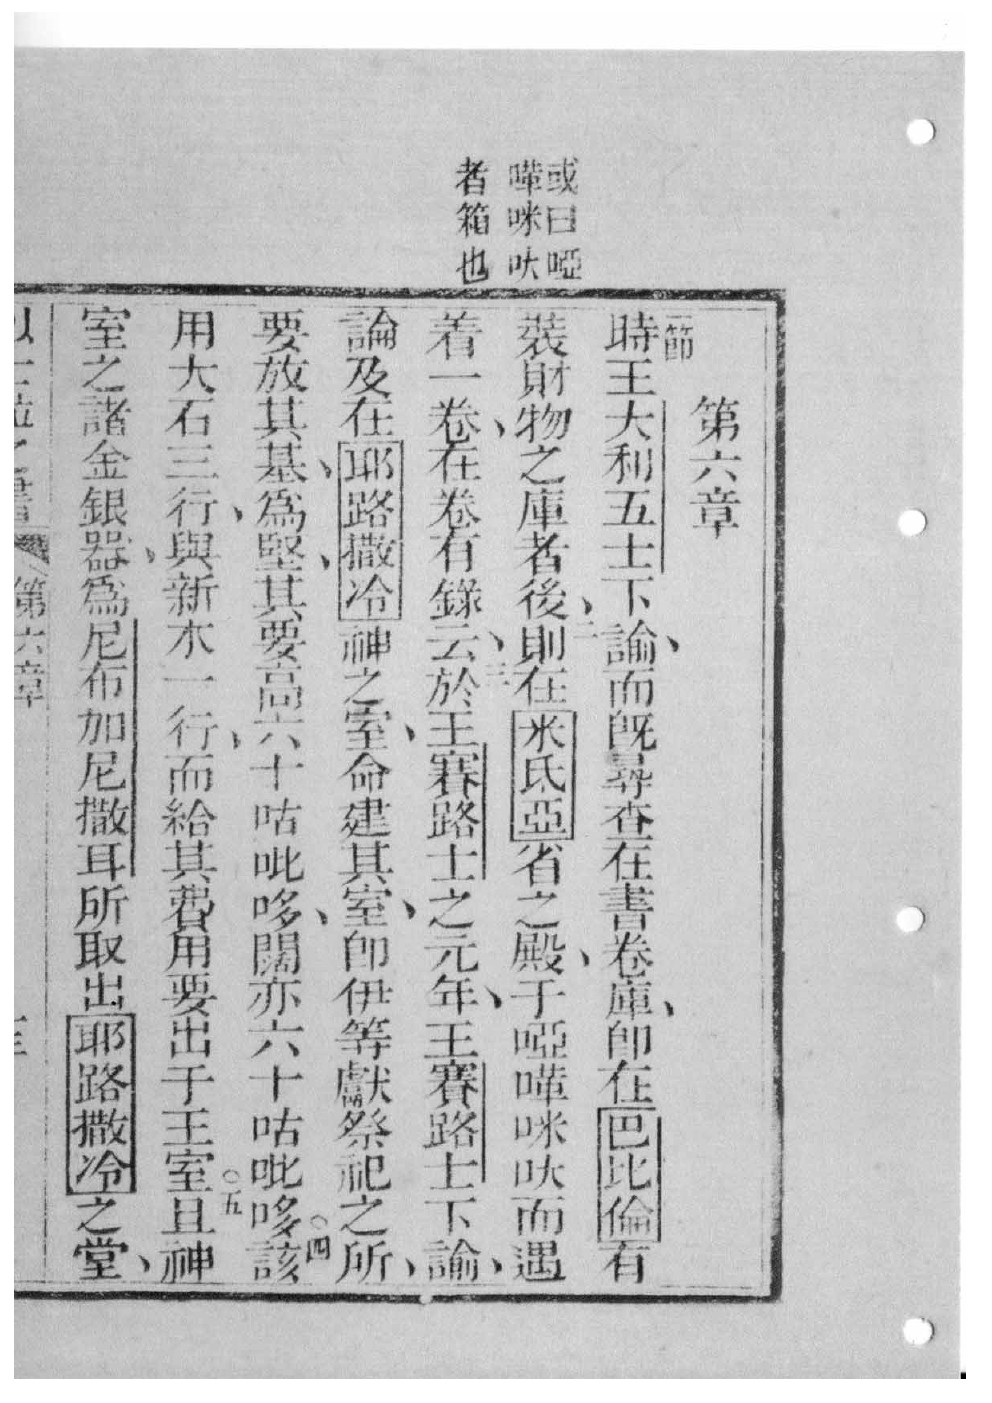 或曰啞
嗶咪吠
者箱也
第六章
一節
時王大利五士下諭、而既尋查在書卷庫、即在巴比倫有
裝財物之庫者後、二則在米氐亞省之殿、于啞嗶咪吠而遇
着一卷、在卷有錄云、三於王賽路士之元年、王賽路士下諭、
論及在耶路撒冷神之室、命建其室、即伊等獻祭祀之所、
要放其基、爲堅、其要高六十咕吡哆、闊亦六十咕吡哆○四該
用大石三行、與新木一行、而給其費用要出于王室○五且神
室之諸金銀器、爲尼布加尼撒耳所取出耶路撒冷之堂、
第六章